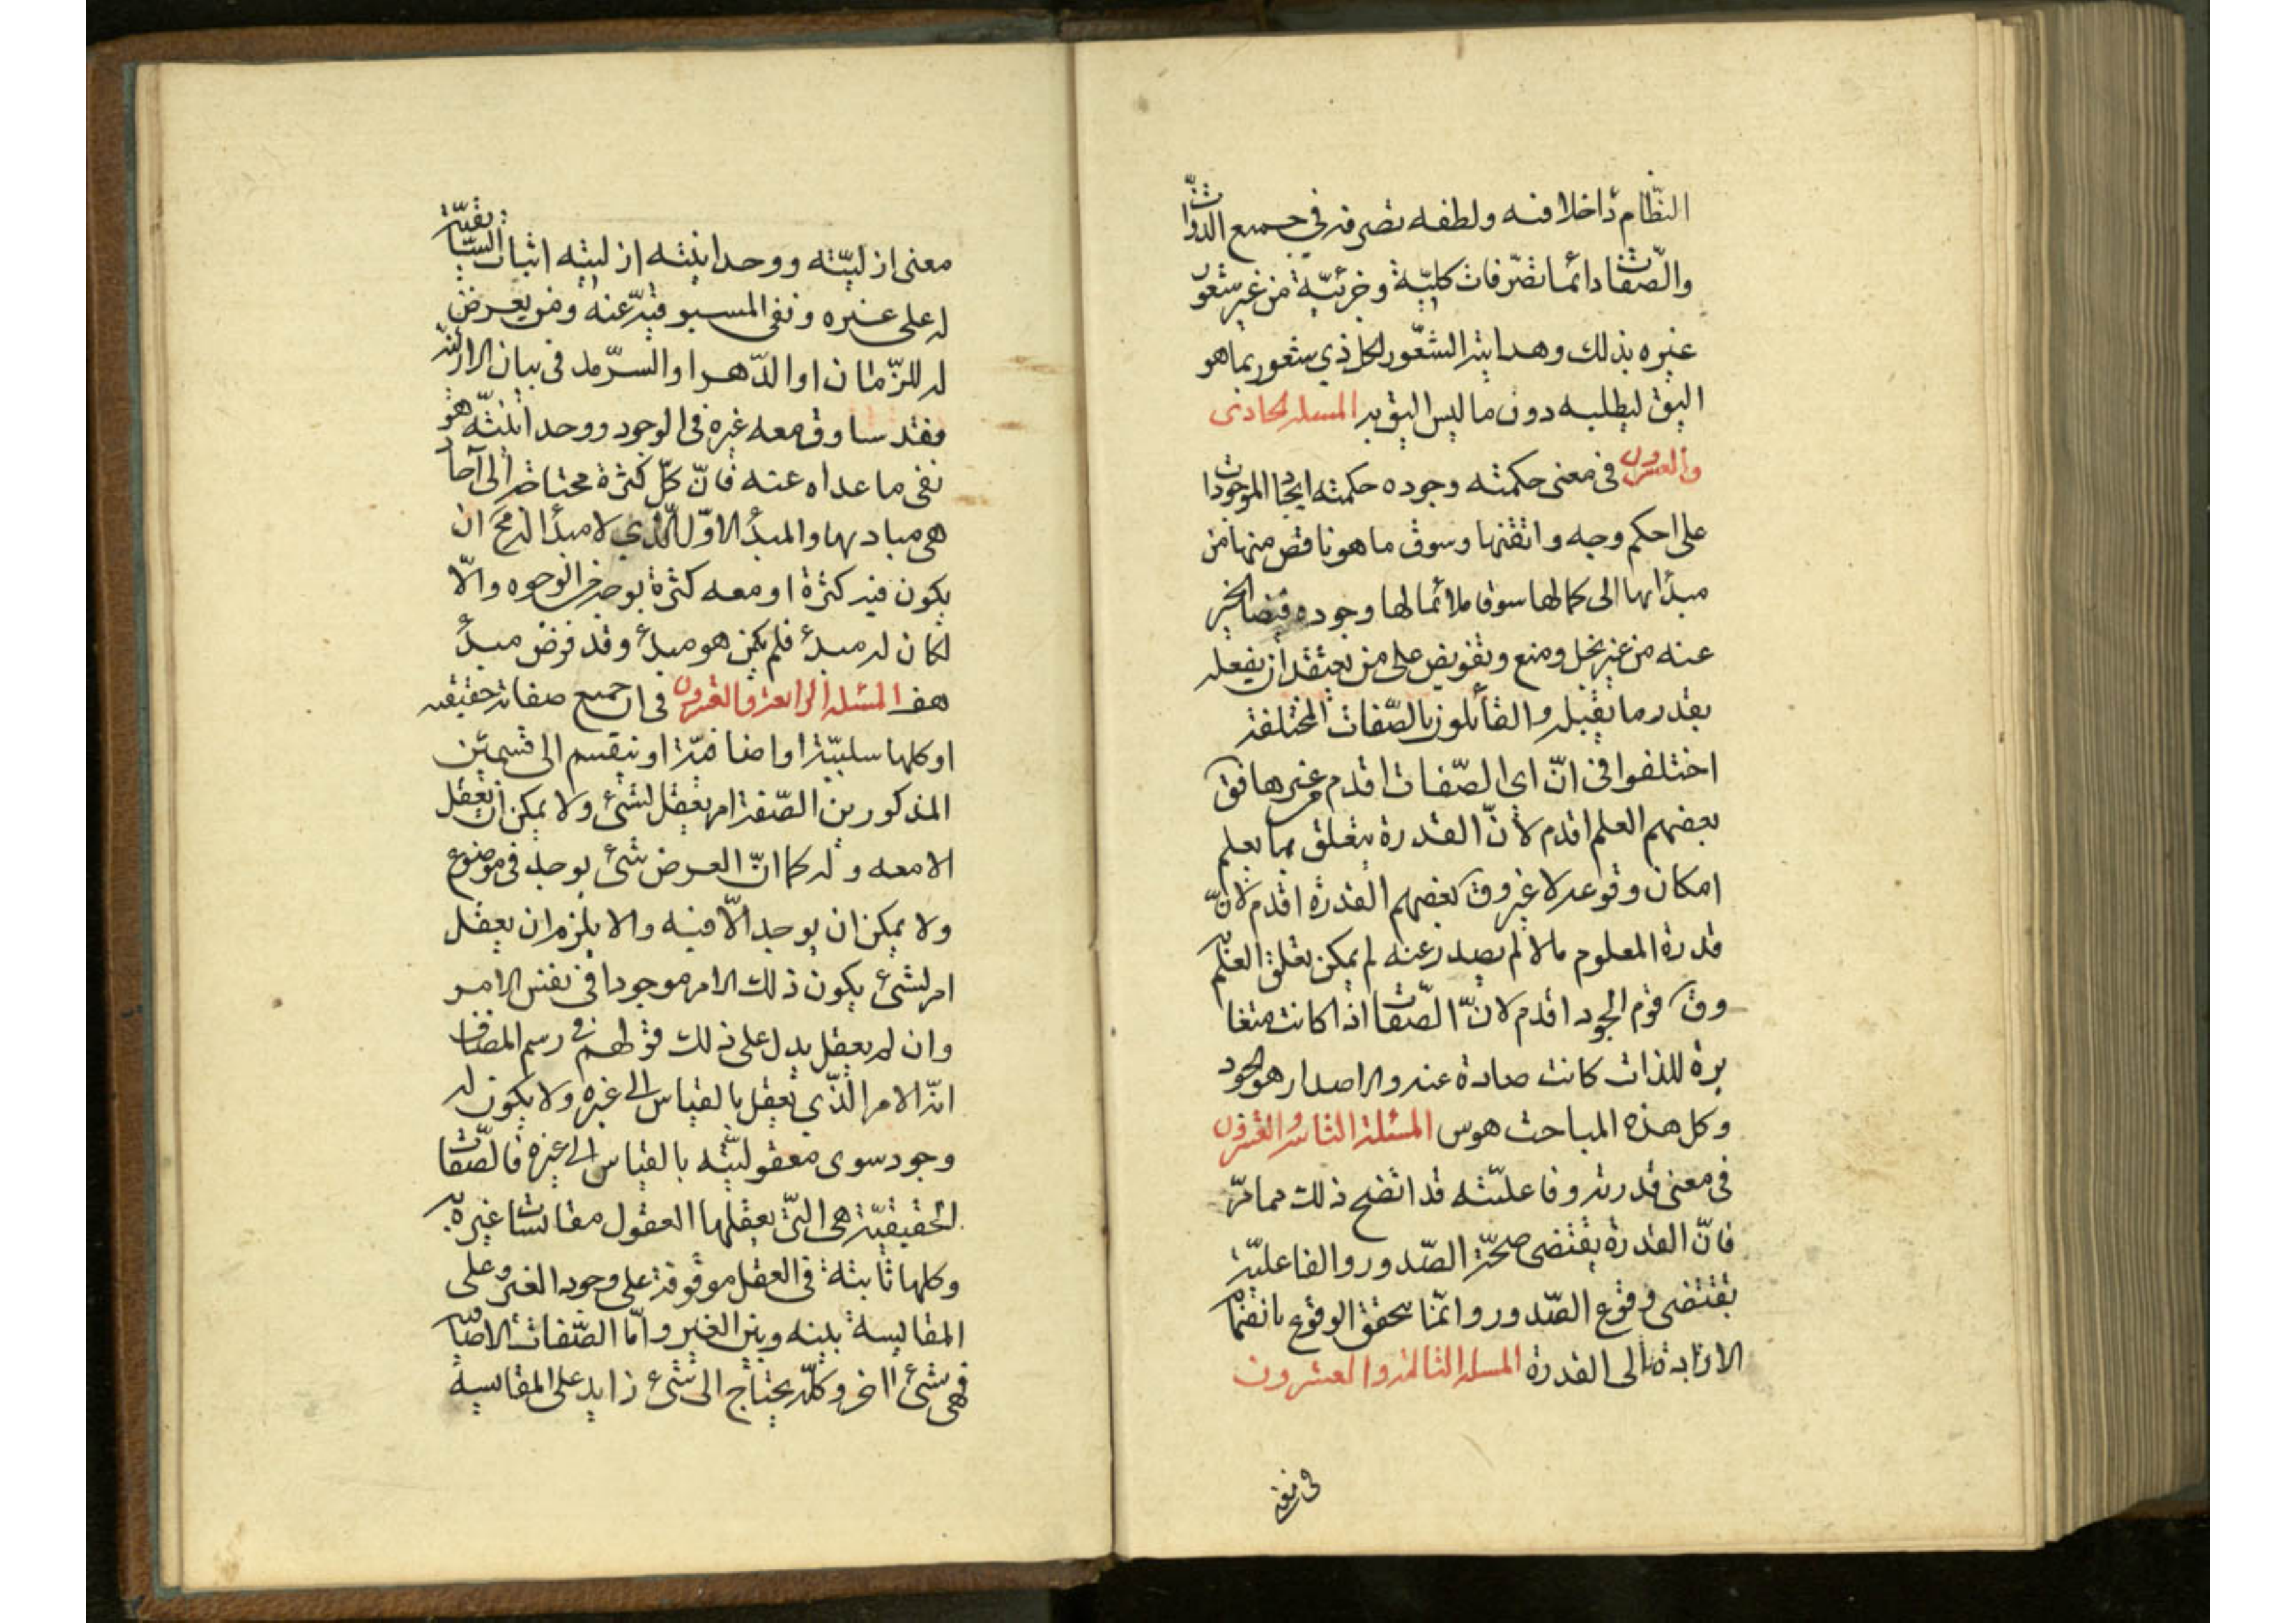 النظام داخلا فيه ولطفه تصرفه في جميع الذوات
والصفات دائما تصرفات كلية وجزئية من غير شعور
غيره بذلك وهدايته الشعور لكل ذي شعور بما هو
اليق ليطلبه دون ما ليس اليق به المسئلة الحادى
والعشرون فى معنى حكمته وجوده حكمته ايجاد الموجودات
على احكم وجه واتقنها وسوق ما هو ناقص منها من
مبدأها الى كمالها سوقا ملائما لها وجوده فيضان الخير
عنه من غير بخل ومنع وتفويض على من يعتقد ان يفعله
بقدر ما يقبله والقائلون بالصفات المختلفة
اختلفوا فى انّ اى الصّفات اقدم من غيرها فق
بعضهم العلم اقدم لانّ القدرة يتعلق بما يعلم
امكان وقوعه لا غير وق بعضهم القدرة اقدم لانّ
قدرة المعلوم ما لا لم يصدر عنه لم يمكن تعلق العلم
وق قوم الجود اقدم لانّ الصّفات اذا كانت متغا
يرة للذات كانت صادة عنه والاصدار هو الجود
وكل هذه المباحث هوس المسئلة الثانية والعشرون
فى معنى قدرته وفاعليّته قد اتضح ذلك مما مرّ
فانّ القدرة يقتضى صحّة الصّدور والفاعليّة
يقتضى وقوع الصّدور وانّما يتحقق الوقوع بانضمام
الارادة الى القدرة المسئلة الثالثة والعشرون
فى
معنى ازليّته ووحدانيّته ازليته اثبات السّابقيّة
له على غيره ونفى المسبوقيّة عنه ومن يعرض
له للزّمان او الدّهر او السّرمد فى بيان الازليّة
فقد ساوق معه غيره فى الوجود ووحدانيّته هو
نفى ما عداه عنه فانّ كلّ كثرة محتاجة الى آحاد
هى مباديها والمبدأ الاوّل الّذي لا مبدأ له مح ان
يكون فيه كثرة او معه كثرة بوجه من الوجوه والّا
لكان له مبدء فلم يكن هو مبدء وقد فرض مبدأ
هف المسئلة الرابعة والعشرون فى ان جميع صفاته حقيقيه
او كلها سلبيّة او اضافيّة او ينقسم الى قسمين
المذكورين الصّفة امر يعقل لشىء ولا يمكن ان يعقل
الا معه وله كما انّ العرض شىء يوجد فى موضوع
ولا يمكن ان يوجد الّا فيه والا يلزم ان يعقل
امر لشىء يكون ذلك الامر موجودا فى نفس الامر
وان لم يعقل يدل على ذلك قولهم فى رسم المضاف
انّه الامر الّذي يعقل بالقياس الى غيره ولا يكون له
وجود سوى معقوليّته بالقياس الى غيره فالصّفات
الحقيقيّة هى الّتى يعقلها العقول مقايسات غيره
وكلها ثابتة فى العقل موقوفة على وجود الغير وعلى
المقايسة بينه وبين الغير وامّا الصّفات الاضافيه
فهى شىء اخر وكلّه يحتاج الى شىء زايد على المقايسة